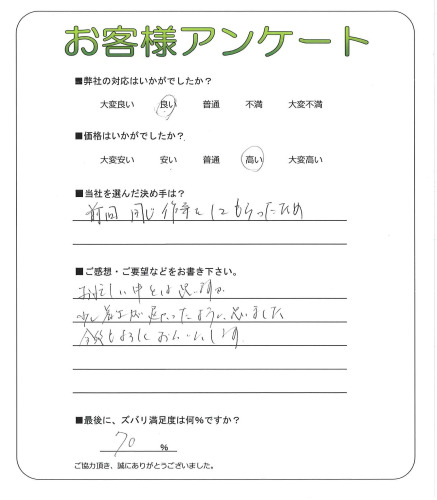 お客様アンケート
■弊社の対応はいかがでしたか？
大変良い 良い 普通 不満 大変不満
■価格はいかがでしたか？
大変安い 安い 普通 高い 大変高い
■当社を選んだ決め手は？
前回 同じ作業をしてもらったため
■ご感想・ご要望などをお書き下さい。
お忙しい中とは思いますが
少し着工が遅かったように思いました
今後もよろしくおねがいします
■最後に、ズバリ満足度は何%ですか？
70 %
ご協力頂き、誠にありがとうございました。